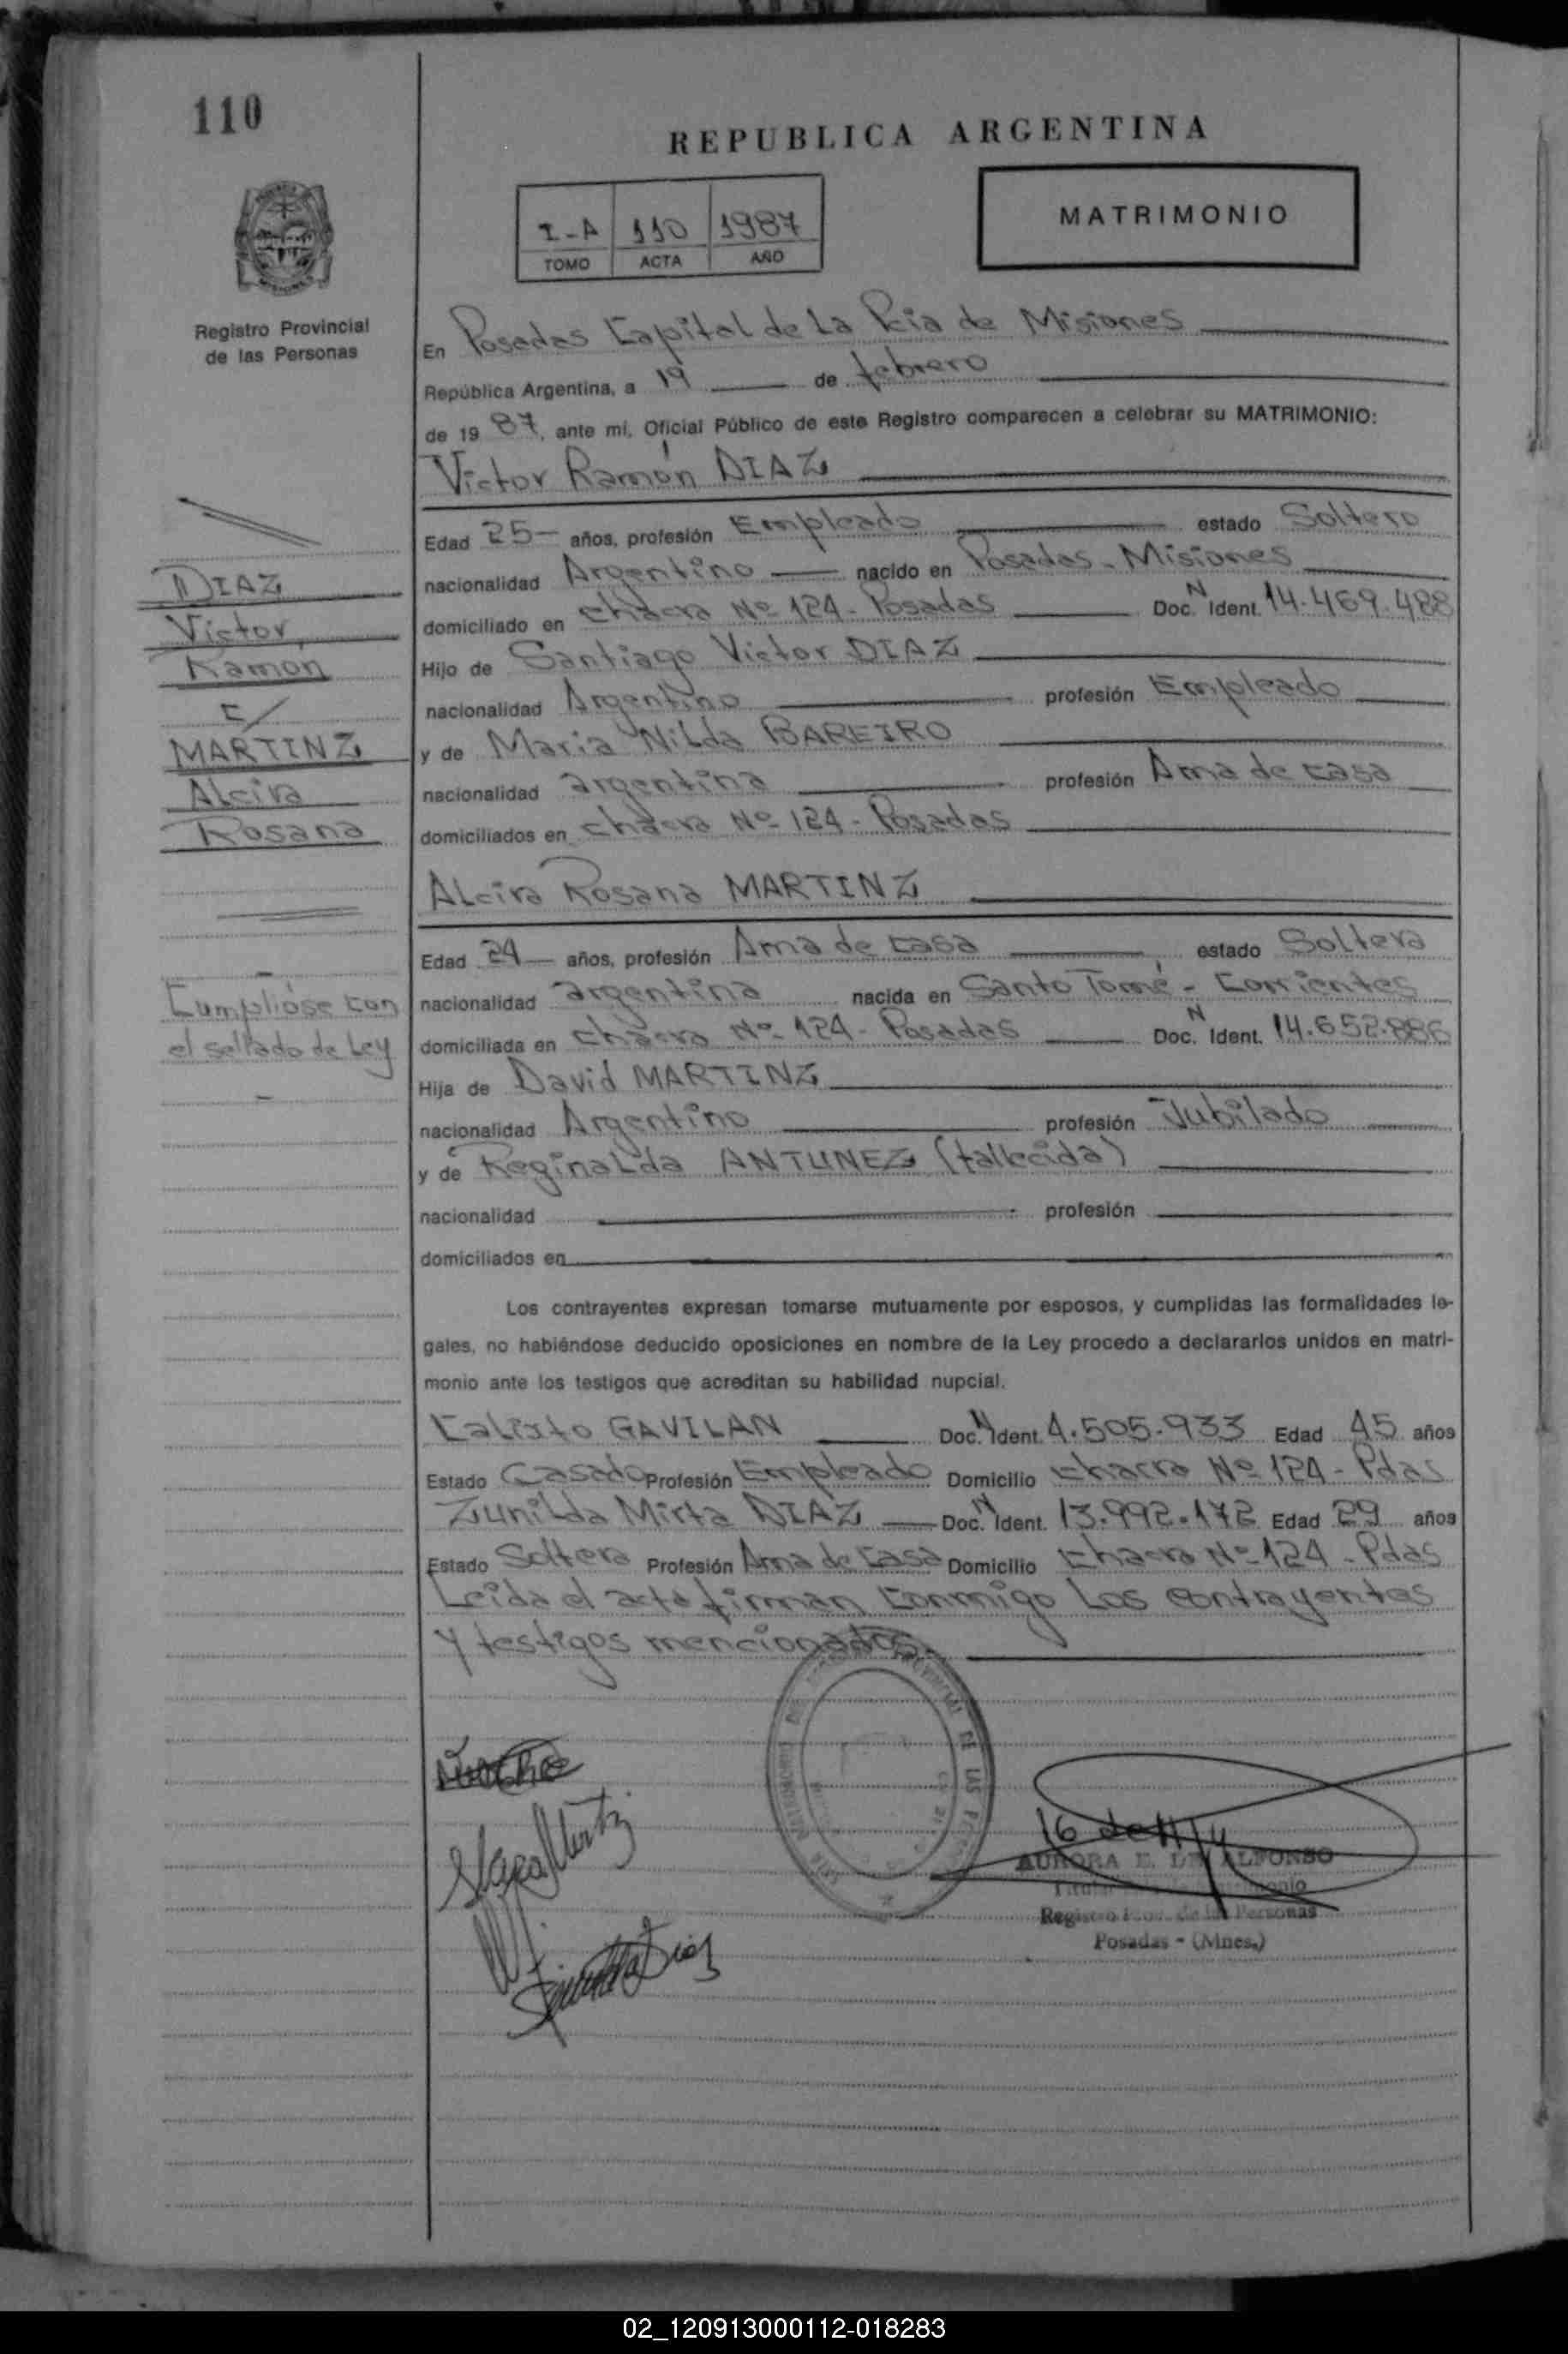 110
REPUBLICA ARGENTINA
I-A 110 1987
TOMO ACTA AÑO
MATRIMONIO
Registro Provincial
de las Personas
En Posadas Capital de La Pcia de Misiones
República Argentina, a 19 de febrero
de 1987, ante mí, Oficial Público de este Registro comparecen a celebrar su MATRIMONIO:
Victor Ramón DIAZ
Edad 25- años, profesión Empleado estado Soltero
nacionalidad Argentino nacido en Posadas - Misiones
domiciliado en chacra Nº 124 - Posadas Doc. N Ident. 14.469.488
Hijo de Santiago Victor DIAZ
nacionalidad Argentino profesión Empleado
y de Maria Nilda BAREIRO
nacionalidad argentina profesión Ama de casa
domiciliados en chacra Nº 124 - Posadas
Alcira Rosana MARTINZ
Edad 24 años, profesión Ama de casa estado Soltera
nacionalidad argentina nacida en Santo Tomé - Corrientes
domiciliada en chacra Nº 124 - Posadas Doc. N Ident. 14.652.886
Hija de David MARTINZ
nacionalidad Argentino profesión Jubilado
y de Reginalda ANTUNEZ (fallecida)
nacionalidad profesión
domiciliados en
Los contrayentes expresan tomarse mutuamente por esposos, y cumplidas las formalidades le-
gales, no habiéndose deducido oposiciones en nombre de la Ley procedo a declararlos unidos en matri-
monio ante los testigos que acreditan su habilidad nupcial.
Calixto GAVILAN Doc. N Ident. 4.505.933 Edad 45 años
Estado Casado Profesión Empleado Domicilio chacra Nº 124 - Pdas
Zunilda Mirta DIAZ Doc. N Ident. 13.992.172 Edad 29 años
Estado Soltera Profesión Ama de Casa Domicilio chacra Nº 124 - Pdas
Leida el acta firman conmigo Los contrayentes
y testigos mencionados.
DIAZ
Victor
Ramón
c/
MARTINZ
Alcira
Rosana
Cumplióse con
el sellado de Ley
AURORA E. DE ALFONSO
Registro Prov. de las Personas
Posadas - (Mnes.)
02_120913000112-018283